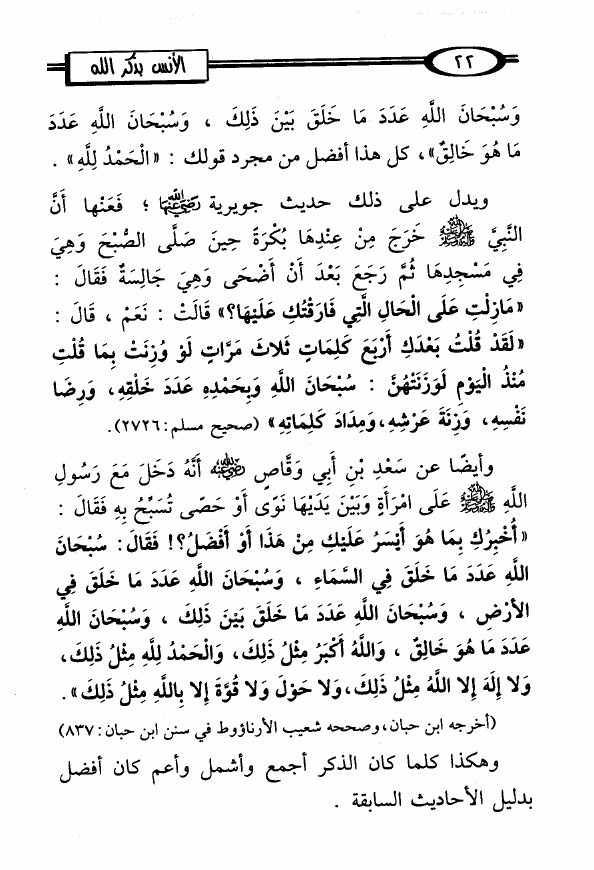 ٢٢
الأنس بذكر الله
وَسُبْحَانَ اللَّهِ عَدَدَ مَا خَلَقَ بَيْنَ ذَلِكَ ، وَسُبْحَانَ اللَّهِ عَدَدَ
مَا هُوَ خَالِقٌ»، كل هذا أفضل من مجرد قولك : «الْحَمْدُ لِلَّهِ» .
ويدل على ذلك حديث جويرية رضي الله عنها ؛ فَعَنْها أَنَّ
النَّبِيَّ ﷺ خَرَجَ مِنْ عِنْدِهَا بُكْرَةً حِينَ صَلَّى الصُّبْحَ وَهِيَ
فِي مَسْجِدِهَا ثُمَّ رَجَعَ بَعْدَ أَنْ أَضْحَى وَهِيَ جَالِسَةٌ فَقَالَ :
«مَازِلْتِ عَلَى الْحَالِ الَّتِي فَارَقْتُكِ عَلَيْهَا؟» قَالَتْ : نَعَمْ ، قَالَ :
«لَقَدْ قُلْتُ بَعْدَكِ أَرْبَعَ كَلِمَاتٍ ثَلاثَ مَرَّاتٍ لَوْ وُزِنَتْ بِمَا قُلْتِ
مُنْذُ الْيَوْمِ لَوَزَنَتْهُنَّ : سُبْحَانَ اللَّهِ وَبِحَمْدِهِ عَدَدَ خَلْقِهِ، وَرِضَا
نَفْسِهِ، وَزِنَةَ عَرْشِهِ،وَمِدَادَ كَلِمَاتِهِ» (صحيح مسلم:٢٧٢٦).
وأيضًا عن سَعْدِ بْنِ أَبِي وَقَّاصٍ رضي الله عنه أَنَّهُ دَخَلَ مَعَ رَسُولِ
اللَّهِ ﷺ عَلَى امْرَأَةٍ وَبَيْنَ يَدَيْهَا نَوًى أَوْ حَصًى تُسَبِّحُ بِهِ فَقَالَ :
«أُخْبِرُكِ بِمَا هُوَ أَيْسَرُ عَلَيْكِ مِنْ هَذَا أَوْ أَفْضَلُ؟! فَقَالَ: سُبْحَانَ
اللَّهِ عَدَدَ مَا خَلَقَ فِي السَّمَاءِ ، وَسُبْحَانَ اللَّهِ عَدَدَ مَا خَلَقَ فِي
الأَرْضِ ، وَسُبْحَانَ اللَّهِ عَدَدَ مَا خَلَقَ بَيْنَ ذَلِكَ ، وَسُبْحَانَ اللَّهِ
عَدَدَ مَا هُوَ خَالِقٌ ، وَاللَّهُ أَكْبَرُ مِثْلُ ذَلِكَ، وَالْحَمْدُ لِلَّهِ مِثْلُ ذَلِكَ،
وَلا إِلَهَ إِلا اللَّهُ مِثْلُ ذَلِكَ،وَلا حَوْلَ وَلا قُوَّةَ إِلا بِاللَّهِ مِثْلُ ذَلِكَ».
(أخرجه ابن حبان،وصححه شعيب الأرناؤوط في سنن ابن حبان:٨٣٧)
وهكذا كلما كان الذكر أجمع وأشمل وأعم كان أفضل
بدليل الأحاديث السابقة .